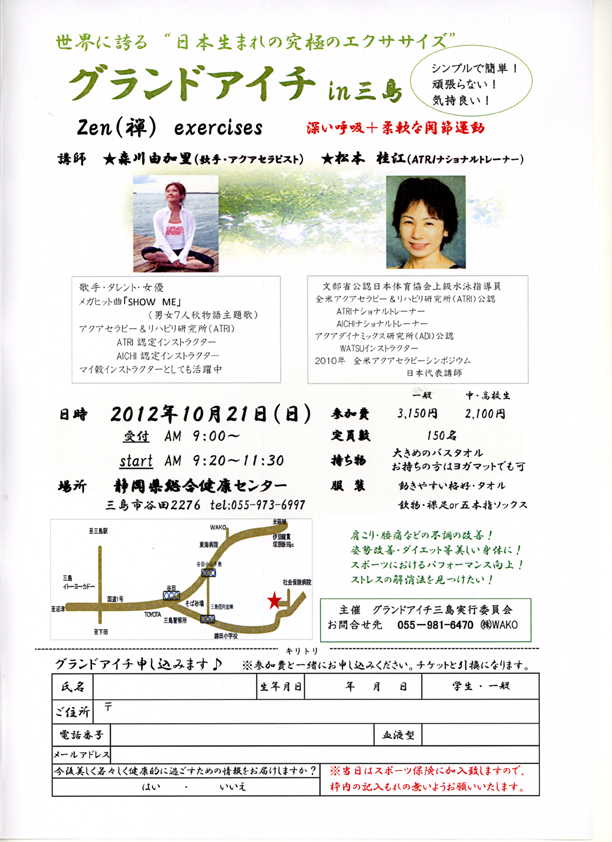 世界に誇る “日本生まれの究極のエクササイズ”
グランドアイチ in 三島
シンプルで簡単！
頑張らない！
気持良い！
Zen(禅) exercises
深い呼吸＋柔軟な関節運動
講師 ★森川由加里(歌手・アクアセラピスト) ★松本 桂江(ATRIナショナルトレーナー)
歌手・タレント・女優
メガヒット曲「SHOW ME」
(男女7人秋物語主題歌)
アクアセラピー＆リハビリ研究所(ATRI)
ATRI 認定インストラクター
AICHI 認定インストラクター
マイ穀インストラクターとしても活躍中
文部省公認日本体育協会上級水泳指導員
全米アクアセラピー＆リハビリ研究所(ATRI)公認
ATRIナショナルトレーナー
AICHIナショナルトレーナー
アクアダイナミックス研究所(ADI)公認
WATSUインストラクター
2010年 全米アクアセラピーシンポジウム
日本代表講師
日時 2012年10月21日(日)
受付 AM 9:00～
start AM 9:20～11:30
場所 静岡県総合健康センター
三島市谷田2276 tel:055-973-6997
一般 中・高校生
参加費 3,150円 2,100円
定員数 150名
持ち物 大きめのバスタオル
お持ちの方はヨガマットでも可
服装 動きやすい格好・タオル
飲物・裸足or五本指ソックス
至三島駅
WAKO
至箱根
東海病院
三島
イトーヨーカドー
谷田
社会保険病院
国道1号
至沼津
TOYOTA
そば処場
三島信用金庫
三島警察所
至下田
錦田小学校
肩こり・腰痛などの不調の改善！
姿勢改善・ダイエット等美しい身体に！
スポーツにおけるパフォーマンス向上！
ストレスの解消法を見つけたい！
主催 グランドアイチ三島実行委員会
お問合せ先 055-981-6470 ㈱WAKO
キリトリ
グランドアイチ申し込みます♪ ※参加費と一緒にお申し込みください。チケットと引換になります。
氏名 生年月日 年 月 日 学生・一般
ご住所 〒
電話番号 血液型
メールアドレス
今後美しく若々しく健康的に過ごすための情報をお届けしますか？
はい ・ いいえ
※当日はスポーツ保険に加入致しますので、
枠内の記入もれの無いようお願いいたします。